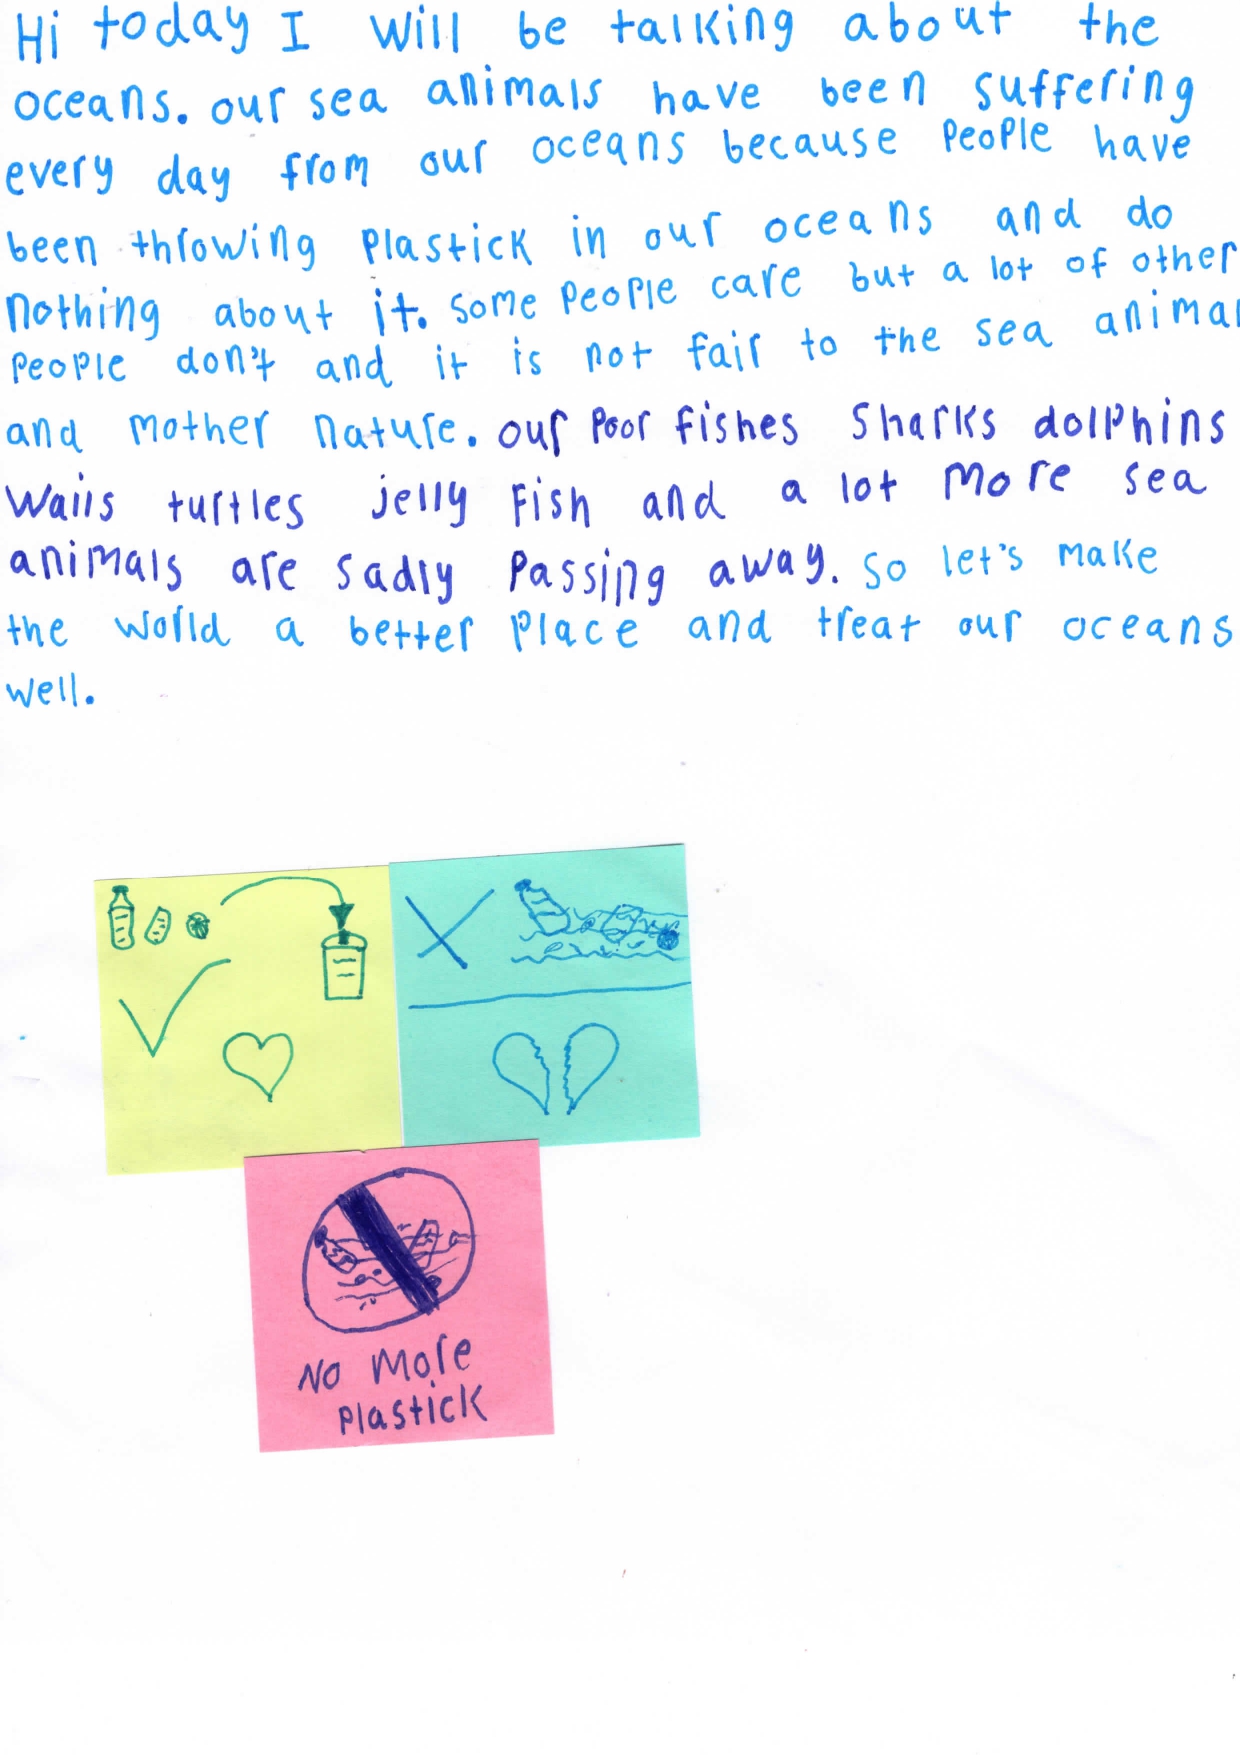 Hi today I will be talking about the
oceans. our sea animals have been suffering
every day from our oceans because people have
been throwing plastick in our oceans and do
nothing about it. some people care but a lot of other
people don't and it is not fair to the sea animal
and mother nature. our poor fishes sharks dolphins
wails turtles jelly fish and a lot more sea
animals are sadly passing away. so let's make
the world a better place and treat our oceans
well.
No more
plastick